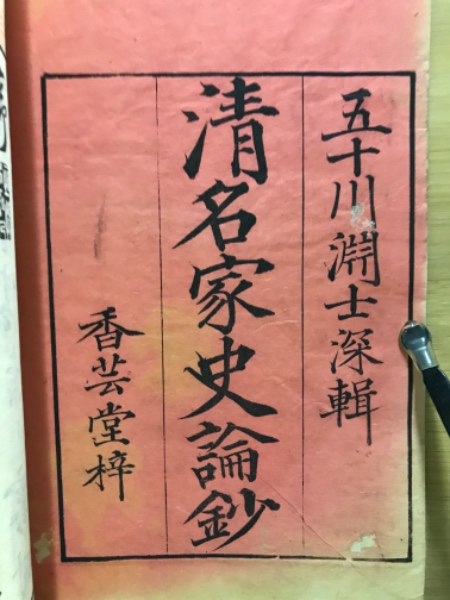 五十川淵士深輯
清名家史論鈔
香芸堂梓